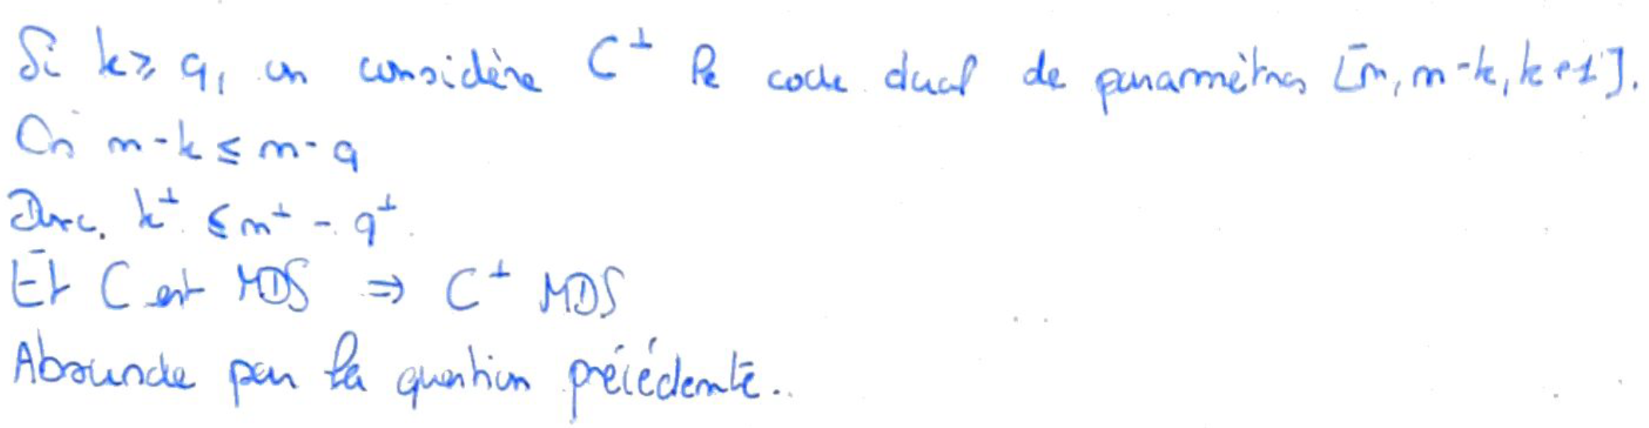 Si k ≥ q, on considère C^⊥ le code dual de paramètres [n, n-k, k+1].
Or n-k ≤ n-q
Donc k^⊥ ≤ n^⊥ - q^⊥.
Et C est MDS ⇒ C^⊥ MDS
Absurde par la question précédente.